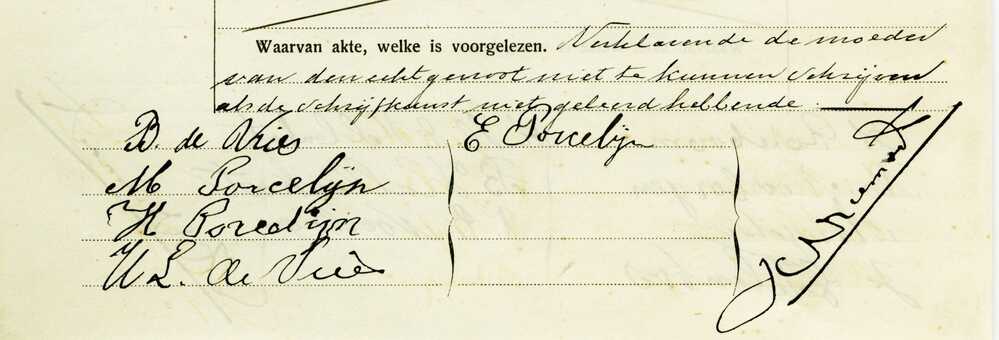 Waarvan akte, welke is voorgelezen. Verklarende de moeder
van den echtgenoot niet te kunnen schrijven
als de schrijfkunst niet geleerd hebbende.
B. de Vries
E Porcelijn
M Porcelijn
H Porcelijn
H L. de Vries